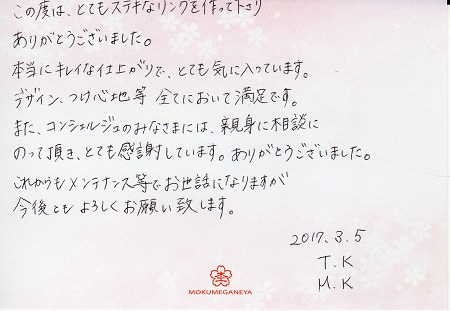 この度は、とてもステキなリングを作って下さり
ありがとうございました。
本当にキレイな仕上がりで、とても気に入っています。
デザイン、つけ心地等 全てにおいて満足です。
また、コンシェルジュのみなさまには、親身に相談に
のって頂き、とても感謝しています。ありがとうございました。
これからもメンテナンス等でお世話になりますが
今後とも よろしくお願い致します。
2017.3.5
T.K
M.K
MOKUMEGANEYA